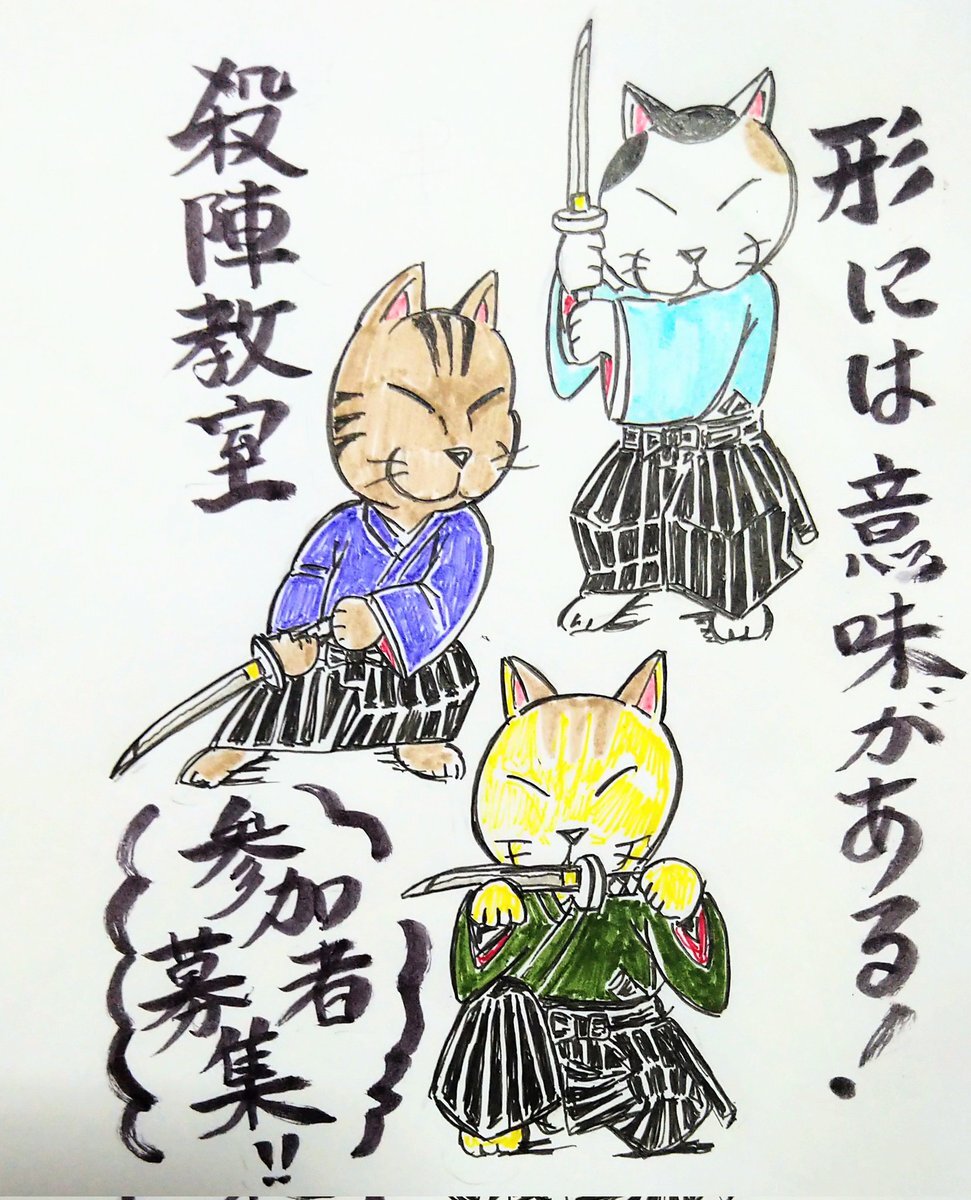 形には意味がある!
殺陣教室
参加者
募集!!